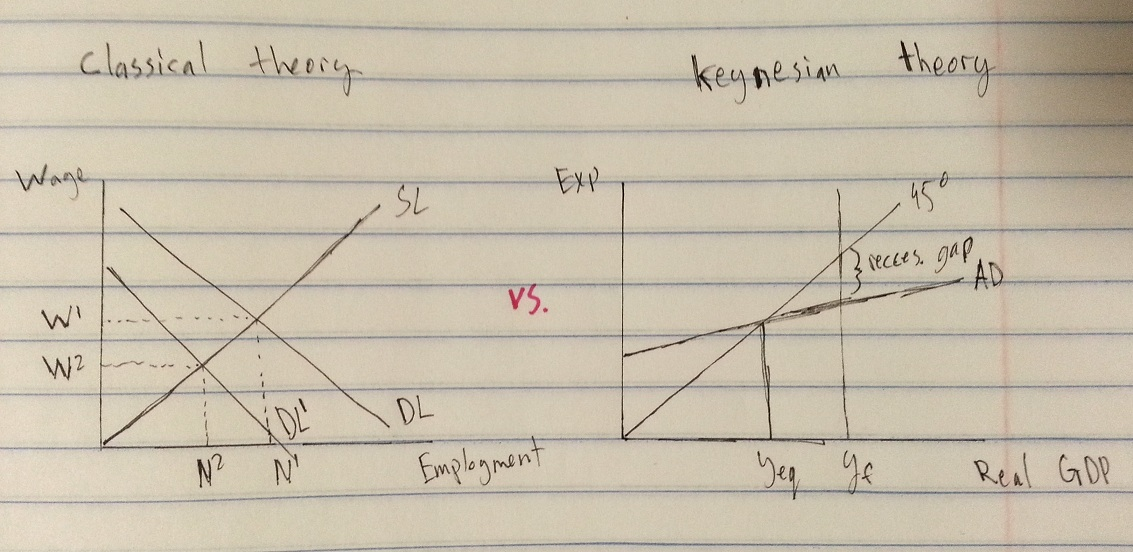 Classical theory
Keynesian theory
Wage
SL
W1
W2
DL1
DL
N2
N1
Employment
vs.
Exp
45°
recces. gap
AD
yeq
yf
Real GDP